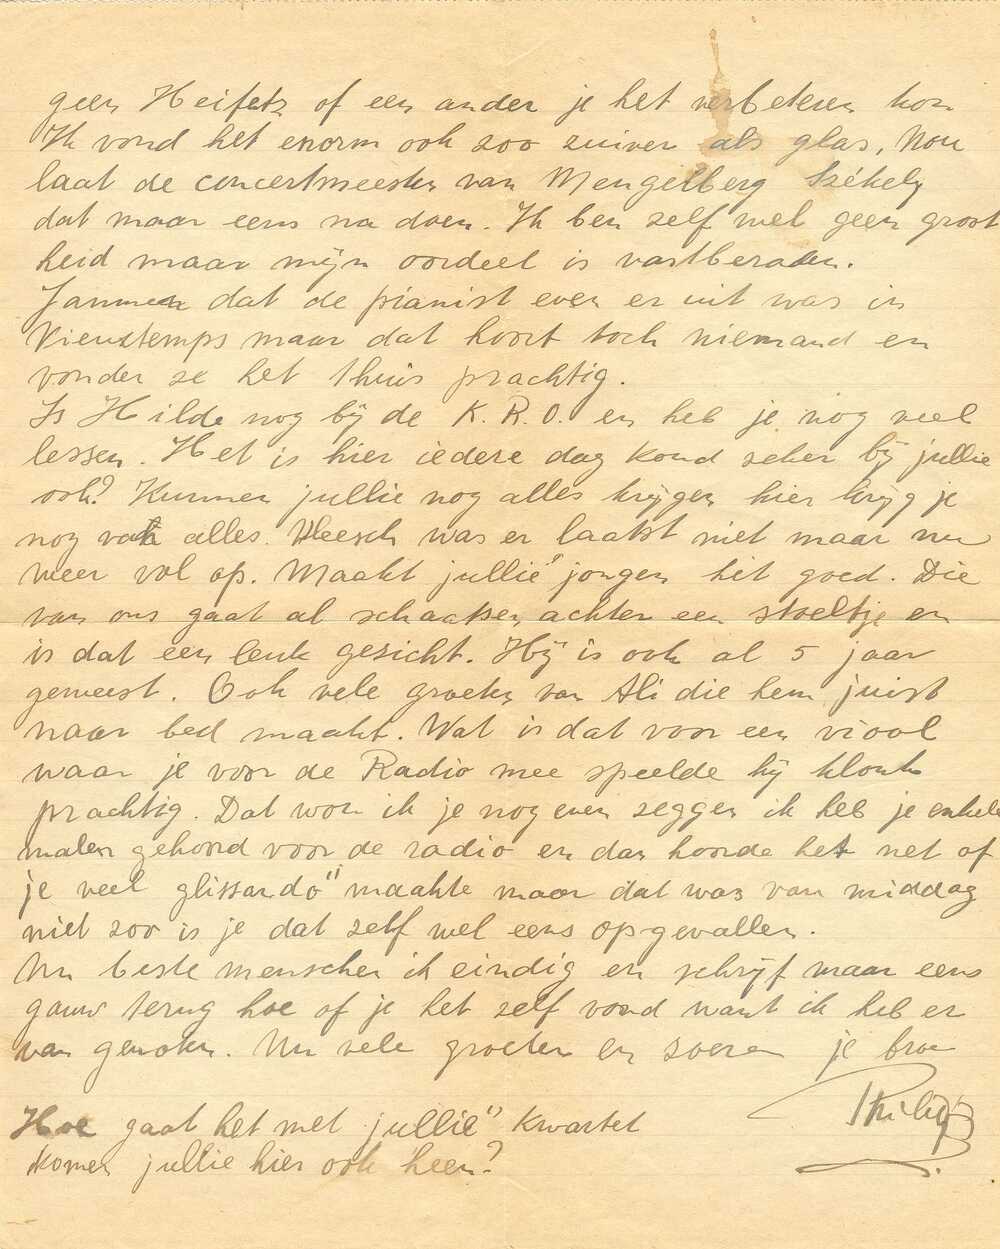 geen Heifetz of een ander je het verbeteren kon
Ik vond het enorm ook zoo zuiver als glas, Nou
laat de concertmeester van Mengelberg Székely
dat maar eens na doen. Ik ben zelf wel geen groot
heid maar mijn oordeel is vastberaden.
Jammer dat de pianist even er uit was in
Vieuxtemps maar dat hoort toch niemand en
vonden ze het thuis prachtig.
Is Hilde nog bij de K.R.O. en heb je nog veel
lessen. Het is hier iedere dag koud zeker bij jullie
ook? Kunnen jullie nog alles krijgen hier krijg je
nog van alles. Vleesch was er laatst niet maar nu
weer vol op. Maakt jullie" jongen het goed. Die
van ons gaat al schaatsen achter een stoeltje en
is dat een leuk gezicht. Hij is ook al 5 jaar
geweest. Ook vele groeten van Ali die hem juist
naar bed maakt. Wat is dat voor een viool
waar je voor de Radio mee speelde hij klonk
prachtig. Dat wou ik je nog even zeggen ik heb je enkele
malen gehoord voor de radio en dan hoorde het net of
je veel glissando" maakte maar dat was van middag
niet zoo is je dat zelf wel eens opgevallen.
Nu beste menschen ik eindig en schrijf maar eens
gauw terug hoe of je het zelf vond want ik heb er
van genoten. Nu vele groeten en zoenen je broer
Philip
Hoe gaat het met jullie" Kwartet
komen jullie hier ook heen?